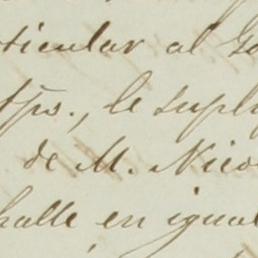 ticular al Go
tfs., le supl
de M. Nico
halle en igual